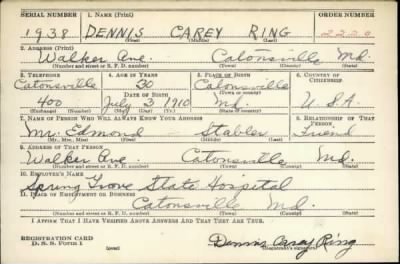 SERIAL NUMBER 1. NAME (Print) ORDER NUMBER
1938 DENNIS CAREY RING 2229
(First) (Middle) (Last)
2. ADDRESS (Print)
Walker Ave. Catonsville Md.
(Number and street or R. F. D. number) (Town) (County) (State)
3. TELEPHONE 4. AGE IN YEARS 5. PLACE OF BIRTH 6. COUNTRY OF CITIZENSHIP
Catonsville 30 Catonsville
DATE OF BIRTH (Town or county)
400 July 3 1910 Md. U.S.A.
(Exchange) (Number) (Mo.) (Day) (Yr.) (State or country)
7. NAME OF PERSON WHO WILL ALWAYS KNOW YOUR ADDRESS 8. RELATIONSHIP OF THAT PERSON
Mr. Edmond Stabler Friend
(Mr., Mrs., Miss) (First) (Middle) (Last)
9. ADDRESS OF THAT PERSON
Walker Ave. Catonsville Md.
(Number and street or R. F. D. number) (Town) (County) (State)
10. EMPLOYER'S NAME
Spring Grove State Hospital
11. PLACE OF EMPLOYMENT OR BUSINESS
Catonsville Md.
(Number and street or R. F. D. number) (Town) (County) (State)
I AFFIRM THAT I HAVE VERIFIED ABOVE ANSWERS AND THAT THEY ARE TRUE.
REGISTRATION CARD
D. S. S. FORM 1 (over) Dennis Carey Ring
(Registrant's signature)